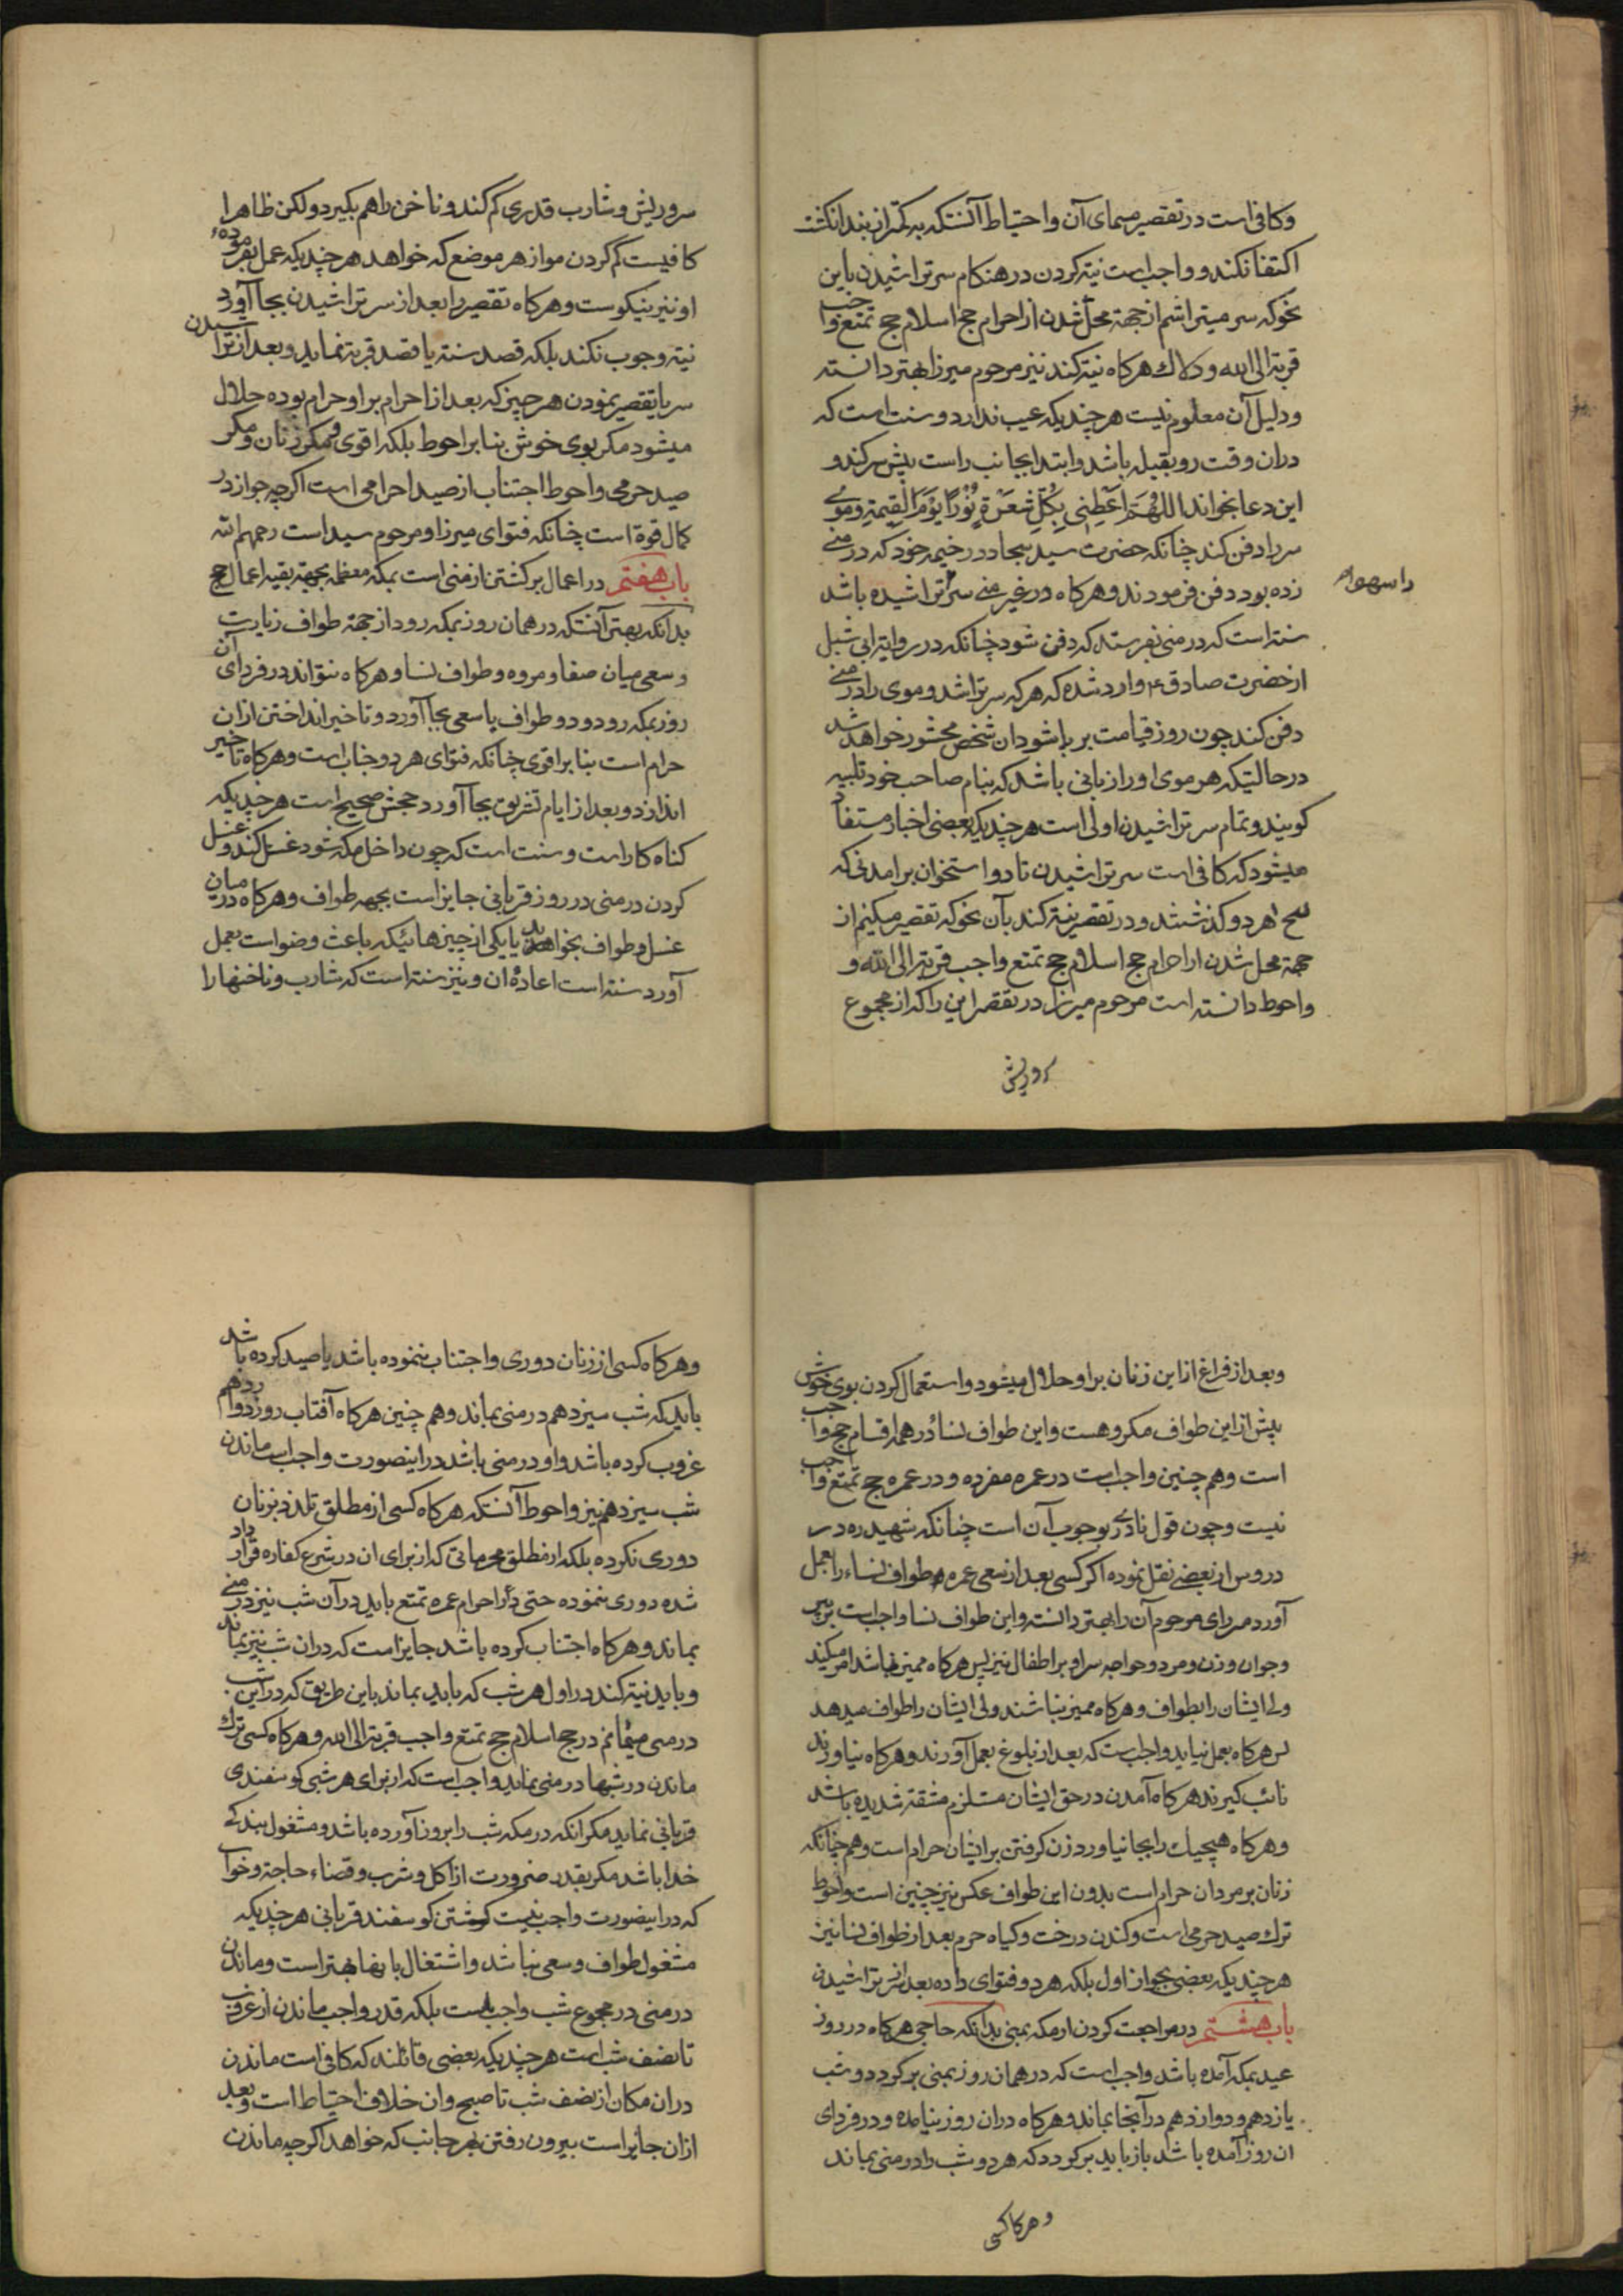 وکافی است در تقصیر مسمای آن و احتیاط آنستکه به کمتر از بند انکشت
اکتفا نکند و واجب است نیته کردن در هنکام سر تراشیدن باین
نحو که سر میتراشم از جهة محل شدن از احرام حج اسلام حج تمتع واجب
قربة الی الله و دلاک هرکاه نیته کند نیز مرحوم میرزا بهتر دانسته
و دلیل آن معلوم نیست هرچندیکه عیب ندارد و سنت است که
دران وقت رو بقبله باشد و ابتدا بجانب راست پیش سر کند و
این دعا بخواند اللهم اعطنی بکل شعرة نورا یوم القیمة و موی
سر را دفن کند چنانکه حضرت سید سجاد در خیمه خود که در منی
زده بودد دفن فرمودند و هرکاه در غیر منی سر تراشیده باشد
را سهوا
سنته است که در منی بفرستد که دفن شود چنانکه در روایة ابی شبل
از حضرت صادق ع وارد شده که هرکه سر تراشد و موی را در منی
دفن کند چون روز قیامت بر پا شود ان شخص محشور خواهد شد
در حالتیکه هر موی او را زبانی باشد که بنام صاحب خود تلبیه
کویند و تمام سر تراشیدن اولی است هرچندیکه بعضی اخبار مستفاد
میشود که کافی است سر تراشیدن تا دو استخوان برامدنی که
هر دو کذشتند و در تقصیر نیته کند بآن نحو که تقصیر میکنم از
جهة محل شدن از احرام حج اسلام حج تمتع واجب قربة الی الله و
واحوط دانسته است مرحوم میرزا در تقصیر این را که از مجموع
سر و ریش
سر و ریش و شارب قدری کم کند و ناخن را هم بکیرد ولکن ظاهرا
کافیست کم کردن مو از هر موضع که خواهد هرچندیکه عمل بفرمودهٔ
او نیز نیکوست و هرکاه تقصیر را بعد از سر تراشیدن بجا آورد
نیته وجوب نکند بلکه قصد سنته یا قصد قربة نماید و بعد از تراشیدن
سر یا تقصیر نمودن هر چیز که بعد از احرام بر او حرام بوده حلال
میشود مکر بوی خوش بنا بر احوط بلکه اقوی و مکر زنان و مکر
صید حرمی و احوط اجتناب از صید احرامی است اکرچه جواز در
کمال قوة است چنانکه فتوای میرزا و مرحوم سید است رحمهم الله
باب هفتم در اعمال برکشتن از منی است بمکه معظمه بجهة بقیه اعمال حج
بدانکه بهتر آنستکه در همان روز بمکه رود از جهة طواف زیارت
و سعی میان صفا و مروه و طواف نسا و هرکاه نتواند در فردای آن
روز بمکه رود و دو طواف با سعی بجا آورد و تاخیر انداختن ازان
حرام است بنا بر اقوی چنانکه فتوای هر دو جناب است و هرکاه تاخیر
اندازد و بعد از ایام تشریق بجا آورد حجش صحیح است هرچندیکه
کناه کار است و سنت است که چون داخل مکه شود غسل کند و غسل
کردن در منی در روز قربانی جایز است بجهة طواف و هرکاه در میان
غسل و طواف بخوابد یا یکی از چیزهائیکه باعث وضو است بعمل
آورد سنته است اعادهٔ ان و نیز سنته است که شارب و ناخنها را
و بعد از فراغ از این زنان بر او حلال میشود و استعمال کردن بوی خوش
پیش از این طواف مکروهست و این طواف نسا در همه اقسام حج واجب
است و هم چنین واجب است در عمره مفرده و در عمره حج تمتع واجب
نیست و چون قول نادری بوجوب آن است چنانکه شهید ره در
دروس از بعضی نقل نموده اکر کسی بعد از سعی عمره طواف نساء را بعمل
آورد مرحوم آن را بهتر دانسته و این طواف نسا واجب است بر پیر
و جوان و زن و مرد و خواجه سرا و بر اطفال نیز پس هرکاه ممیز باشد امر میکند
ولی ایشان را بطواف و هرکاه ممیز نباشند ولی ایشان را طواف میدهد
پس هرکاه بعمل نیاید واجب است که بعد از بلوغ بعمل آورند و هرکاه نیاورند
نائب کیرند هرکاه آمدن در حق ایشان مستلزم مشقة شدیده باشد
و هرکاه هیچیک را بجا نیاورد زن کرفتن بر ایشان حرام است و هم چنانکه
زنان بر مردان حرام است بدون این طواف عکس نیز چنین است و احوط
ترک صید حرمی است و کندن درخت و کیاه حرم بعد از طواف نسا نیز
هرچندیکه بعضی بجواز اول بلکه هر دو فتوای داده بعد از سر تراشیدن
باب هشتم در مراجعت کردن از مکه بمنی بدانکه حاجی هرکاه در روز
عید بمکه آمده باشد واجب است که در همان روز بمنی برکردد و شب
یازدهم و دوازدهم در آنجا بماند و هرکاه دران روز نیامده و در فردای
ان روز آمده باشد باز باید برکردد که هر دو شب را در منی بماند
و هرکاه کسی
و هرکاه کسی از زنان دوری و اجتناب ننموده باشد یا صید کرده باشد
باید که شب سیزدهم در منی بماند و هم چنین هرکاه آفتاب روز دوازدهم
غروب کرده باشد و او در منی باشد در اینصورت واجب است ماندن
شب سیزدهم نیز و احوط آنستکه هرکاه کسی از مطلق تلذذ بزنان
دوری نکرده بلکه از مطلق محرماتی که از برای ان در شرع کفاره قرار داد
شده دوری ننموده حتی در احرام عمره تمتع باید در آن شب نیز در منی
بماند و هرکاه اجتناب کرده باشد جایز است که دران شب نیز نماند
و باید نیته کند در اول هر شب که باید بماند باین طریق که در این شب
در منی میمانم در حج اسلام حج تمتع واجب قربة الی الله و هرکاه کسی ترک
ماندن در شبها در منی نماید واجب است که از برای هر شبی کوسفندی
قربانی نماید مکر انکه در مکه شب را بروز آورده باشد و مشغول ببندکی
خدا باشد مکر بقدر ضرورت از اکل و شرب و قضاء حاجة و خواب
که در اینصورت واجب نیست کشتن کوسفند قربانی هرچندیکه
مشغول طواف و سعی نباشد و اشتغال باینها بهتر است و ماندن
در منی در مجموع شب واجب نیست بلکه قدر واجب ماندن از غروب
تا نصف شب است هرچندیکه بعضی قائلند که کافی است ماندن
دران مکان از نصف شب تا صبح و ان خلاف احتیاط است و بعد
ازان جایز است بیرون رفتن بهر جانب که خواهد اکرچه ماندن